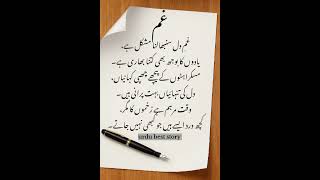 غم
غمِ دل سنبھالنا مشکل ہے،
یادوں کا بوجھ بھی کتنا بھاری ہے۔
مسکراہٹوں کے پیچھے چھپی کہانیاں،
دل کی تنہائیاں بہت پرانی ہیں۔
وقت مرہم ہے زخموں کا مگر،
کچھ درد ایسے ہیں جو کبھی نہیں جاتے۔
urdu best story